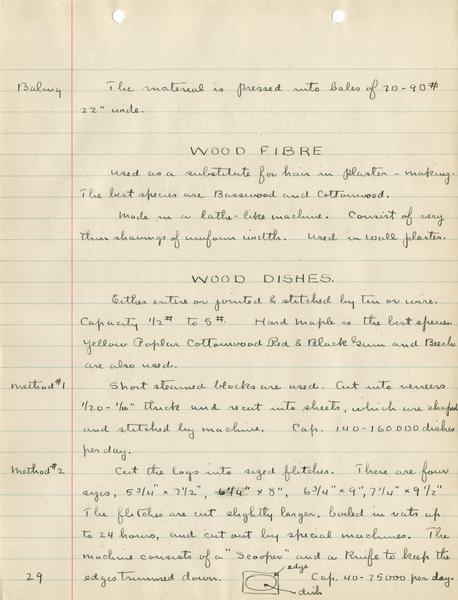 Baling The material is pressed into bales of 70-90#
22" wide.
WOOD FIBRE
Used as a substitute for hair in plaster-making.
The best species are Basswood and Cottonwood.
Made in a lathe-like machine. Consist of very
thin shavings of uniform width. Used in wall plaster.
WOOD DISHES.
Either entire or jointed & stitched by tin or wire.
Capacity 1/2# to 5#. Hard Maple is the best species.
Yellow Poplar Cottonwood Red & Black Gum and Beech
are also used.
Method #1 Short steamed blocks are used. Cut into veneers
1/20-1/10" thick and recut into sheets, which are shaped
and stitched by machine. Cap. 140-160000 dishes
per day.
Method #2 Cut the logs into sized flitches. There are four
sizes, 5 3/4" x 7 1/2", 6 1/4" x 8", 6 3/4" x 9", 7 1/4" x 9 1/2"
The flitches are cut slightly larger, boiled in vats up
to 24 hours, and cut out by special machines. The
machine consists of a "Scooper" and a Knife to keep the
29 edges trimmed down. edge Cap. 40-75000 per day.
dish